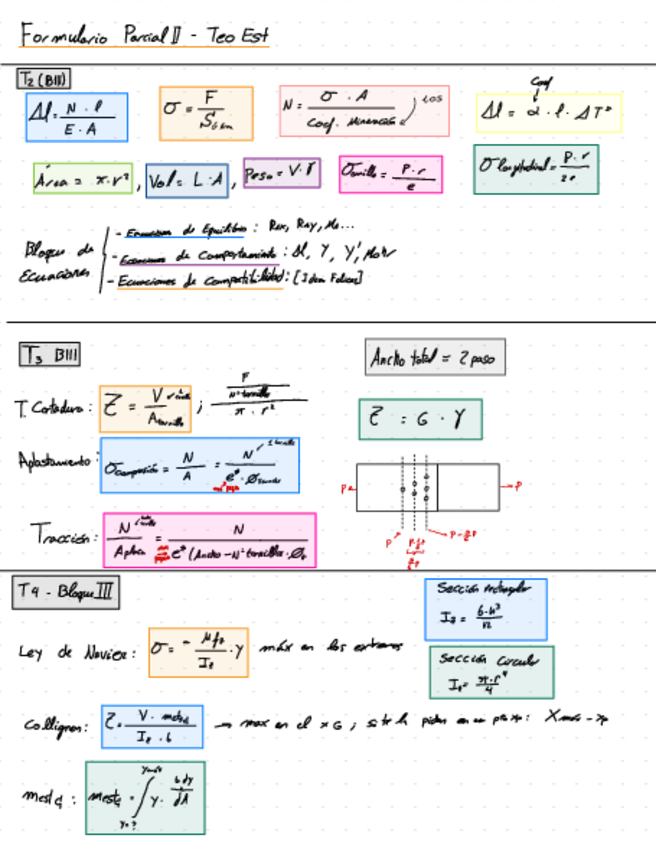 Formulario Parcial II - Teo Est
T2 (BIII)
Δl = N · l / E · A
σ = F / S
N = σ · A / Coef. Minoración
Coef
Δl = α · l · ΔTº
Área = π·r², Vol = L·A, Peso = V·γ
σanillo = P·r / e
σlongitudinal = P·r / 2e
Bloque de Ecuaciones
- Ecuaciones de Equilibrio: Rax, Ray, Ma...
- Ecuaciones de Comportamiento: Δl, Y, Y', Mohr
- Ecuaciones de Compatibilidad:
T3 BIII
Ancho total = 2 paso
T. Cortadura: Z = V / Atornillo ; F / nº tornillos / π · r²
Z = G · γ
Aplastamiento: σcompresión = N / A = N / e* · Ø
Tracción: N / Aplaca = N / e* (Ancho - Nº tornillos · Ø
P
P
P
T4 - Bloque III
Sección rectangular
Iz = b·h³ / 12
Ley de Navier: σ = - Mfz / Iz · y máx en los extremos
Sección Circular
Iz = π·r⁴ / 4
Collignon: Z = V · mestz / Iz · b → max en el xG ; si te piden en un pto xp:
mestz : mestz = ∫ y · b dy
dA